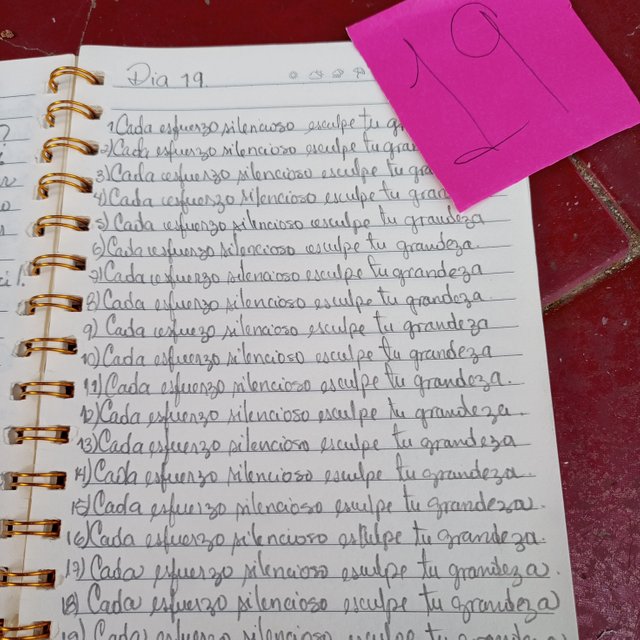 Dia 19.
19
1. Cada esfuerzo silencioso esculpe tu gr
2) Cada esfuerzo silencioso esculpe tu gra
3) Cada esfuerzo silencioso esculpe tu gra
4) Cada esfuerzo silencioso esculpe tu grad
5) Cada esfuerzo silencioso esculpe tu grandeza
6) Cada esfuerzo silencioso esculpe tu grandeza.
7) Cada esfuerzo silencioso esculpe tu grandeza
8) Cada esfuerzo silencioso esculpe tu grandeza
9) Cada esfuezo silencioso esculpe tu grandeza
10) Cada esfuerzo silencioso esculpe tu grandeza
11) Cada esfuerzo silencioso esculpe tu grandeza.
12) Cada esfuerzo silencioso esculpe tu grandeza.
13) Cada esfuerzo silencioso esculpe tu grandeza
14) Cada esfuerzo silencioso esculpe tu grandeza.
15) Cada esfuerzo silencioso esculpe tu grandeza.
16) Cada esfuerzo silencioso esculpe tu grandeza.
17) Cada esfuerzo silencioso esculpe tu grandeza.
18) Cada esfuerzo silencioso esculpe tu grandeza
19) Cada esfuerzo silencioso esculpe tu grandeza